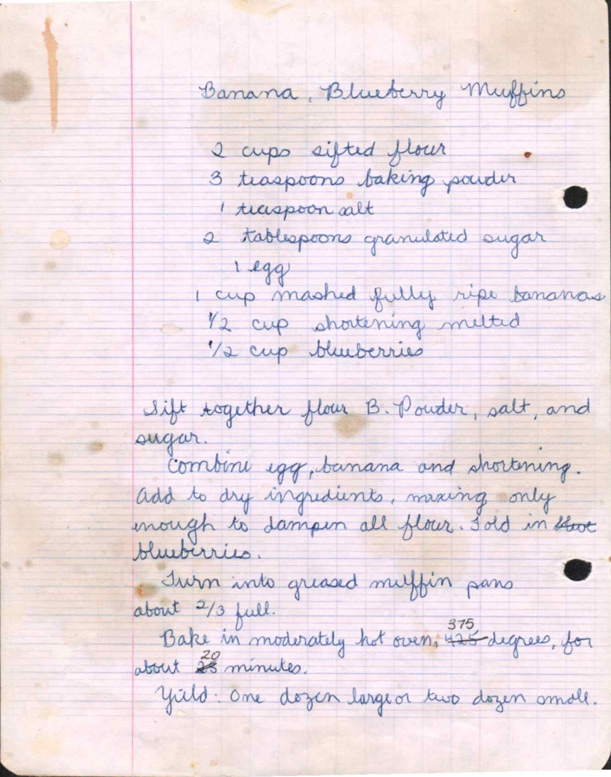 Banana, Blueberry Muffins
2 cups sifted flour
3 teaspoons baking powder
1 teaspoon salt
2 tablespoons granulated sugar
1 egg
1 cup mashed fully ripe bananas
1/2 cup shortening melted
1/2 cup blueberries
Sift together flour B. Powder, salt, and
sugar.
Combine egg, banana and shortening.
Add to dry ingredients, mixing only
enough to dampen all flour. Fold in
blueberries.
Turn into greased muffin pans
about 2/3 full.
375
Bake in moderately hot oven, 425 degrees, for
20
about 25 minutes.
Yield: One dozen large or two dozen small.